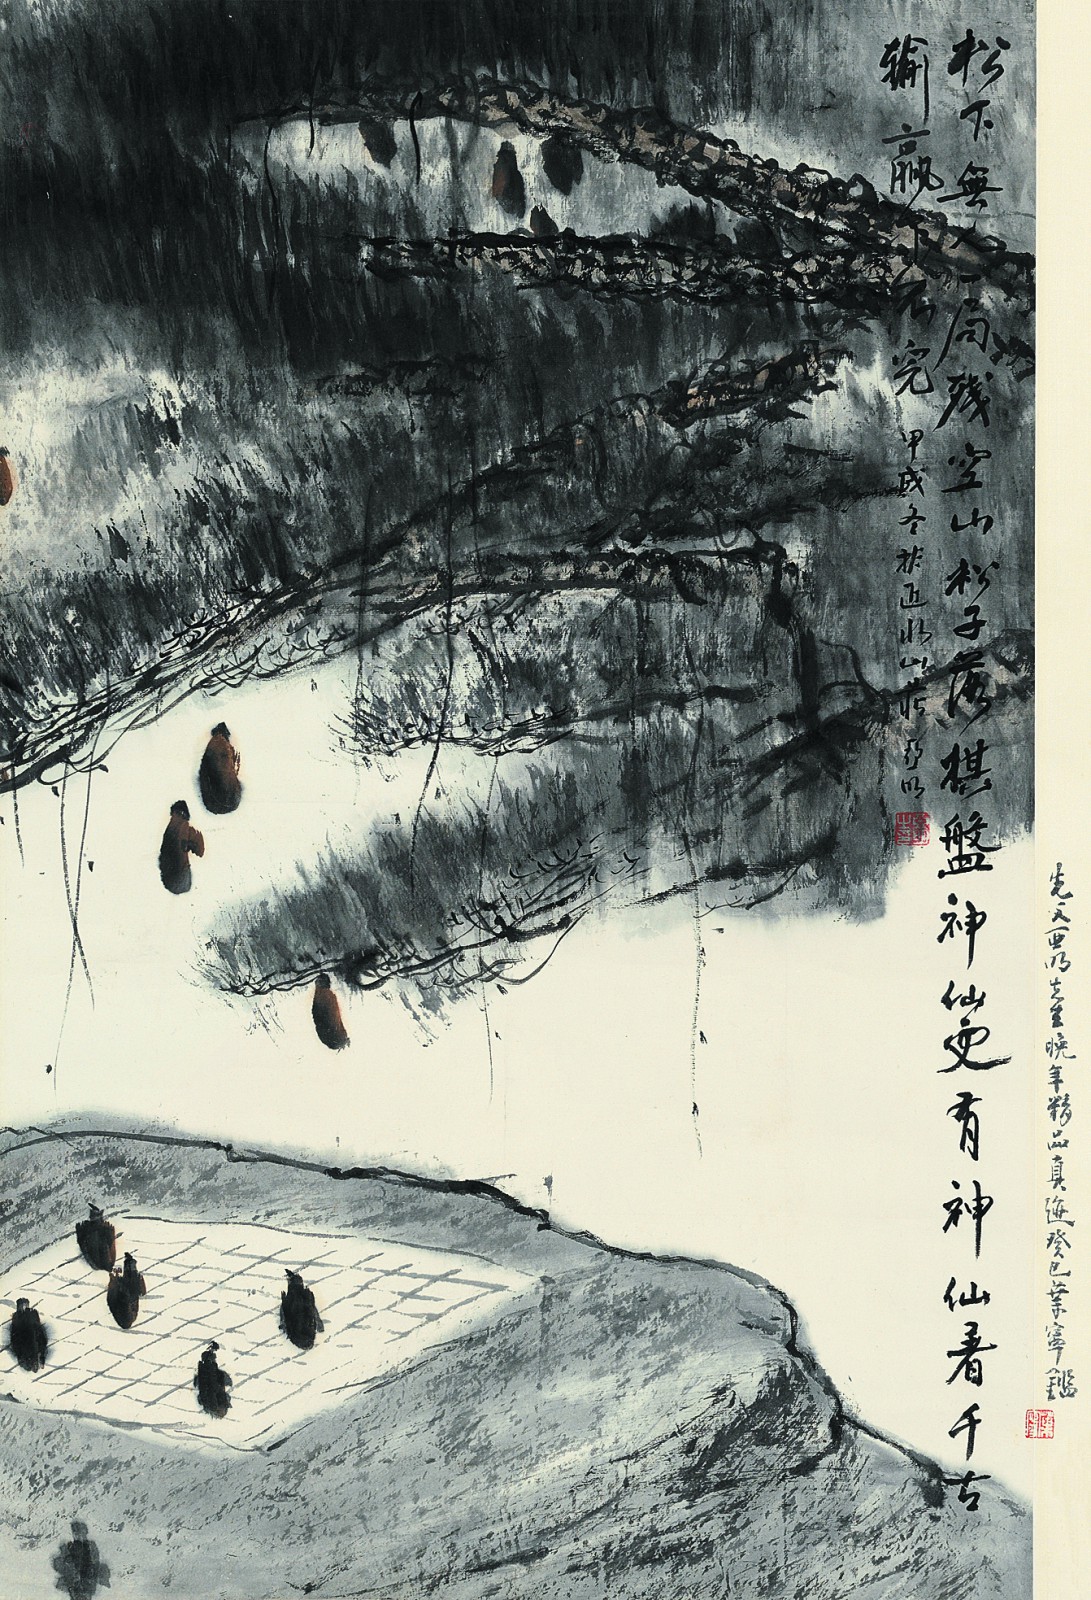 松下無人一局殘空山松子落棋盤神仙更有神仙着千古
輸贏下不完
甲戌冬於近水山莊亞明
先父亞明先生晚年精品真迹癸巳葉寧鑑